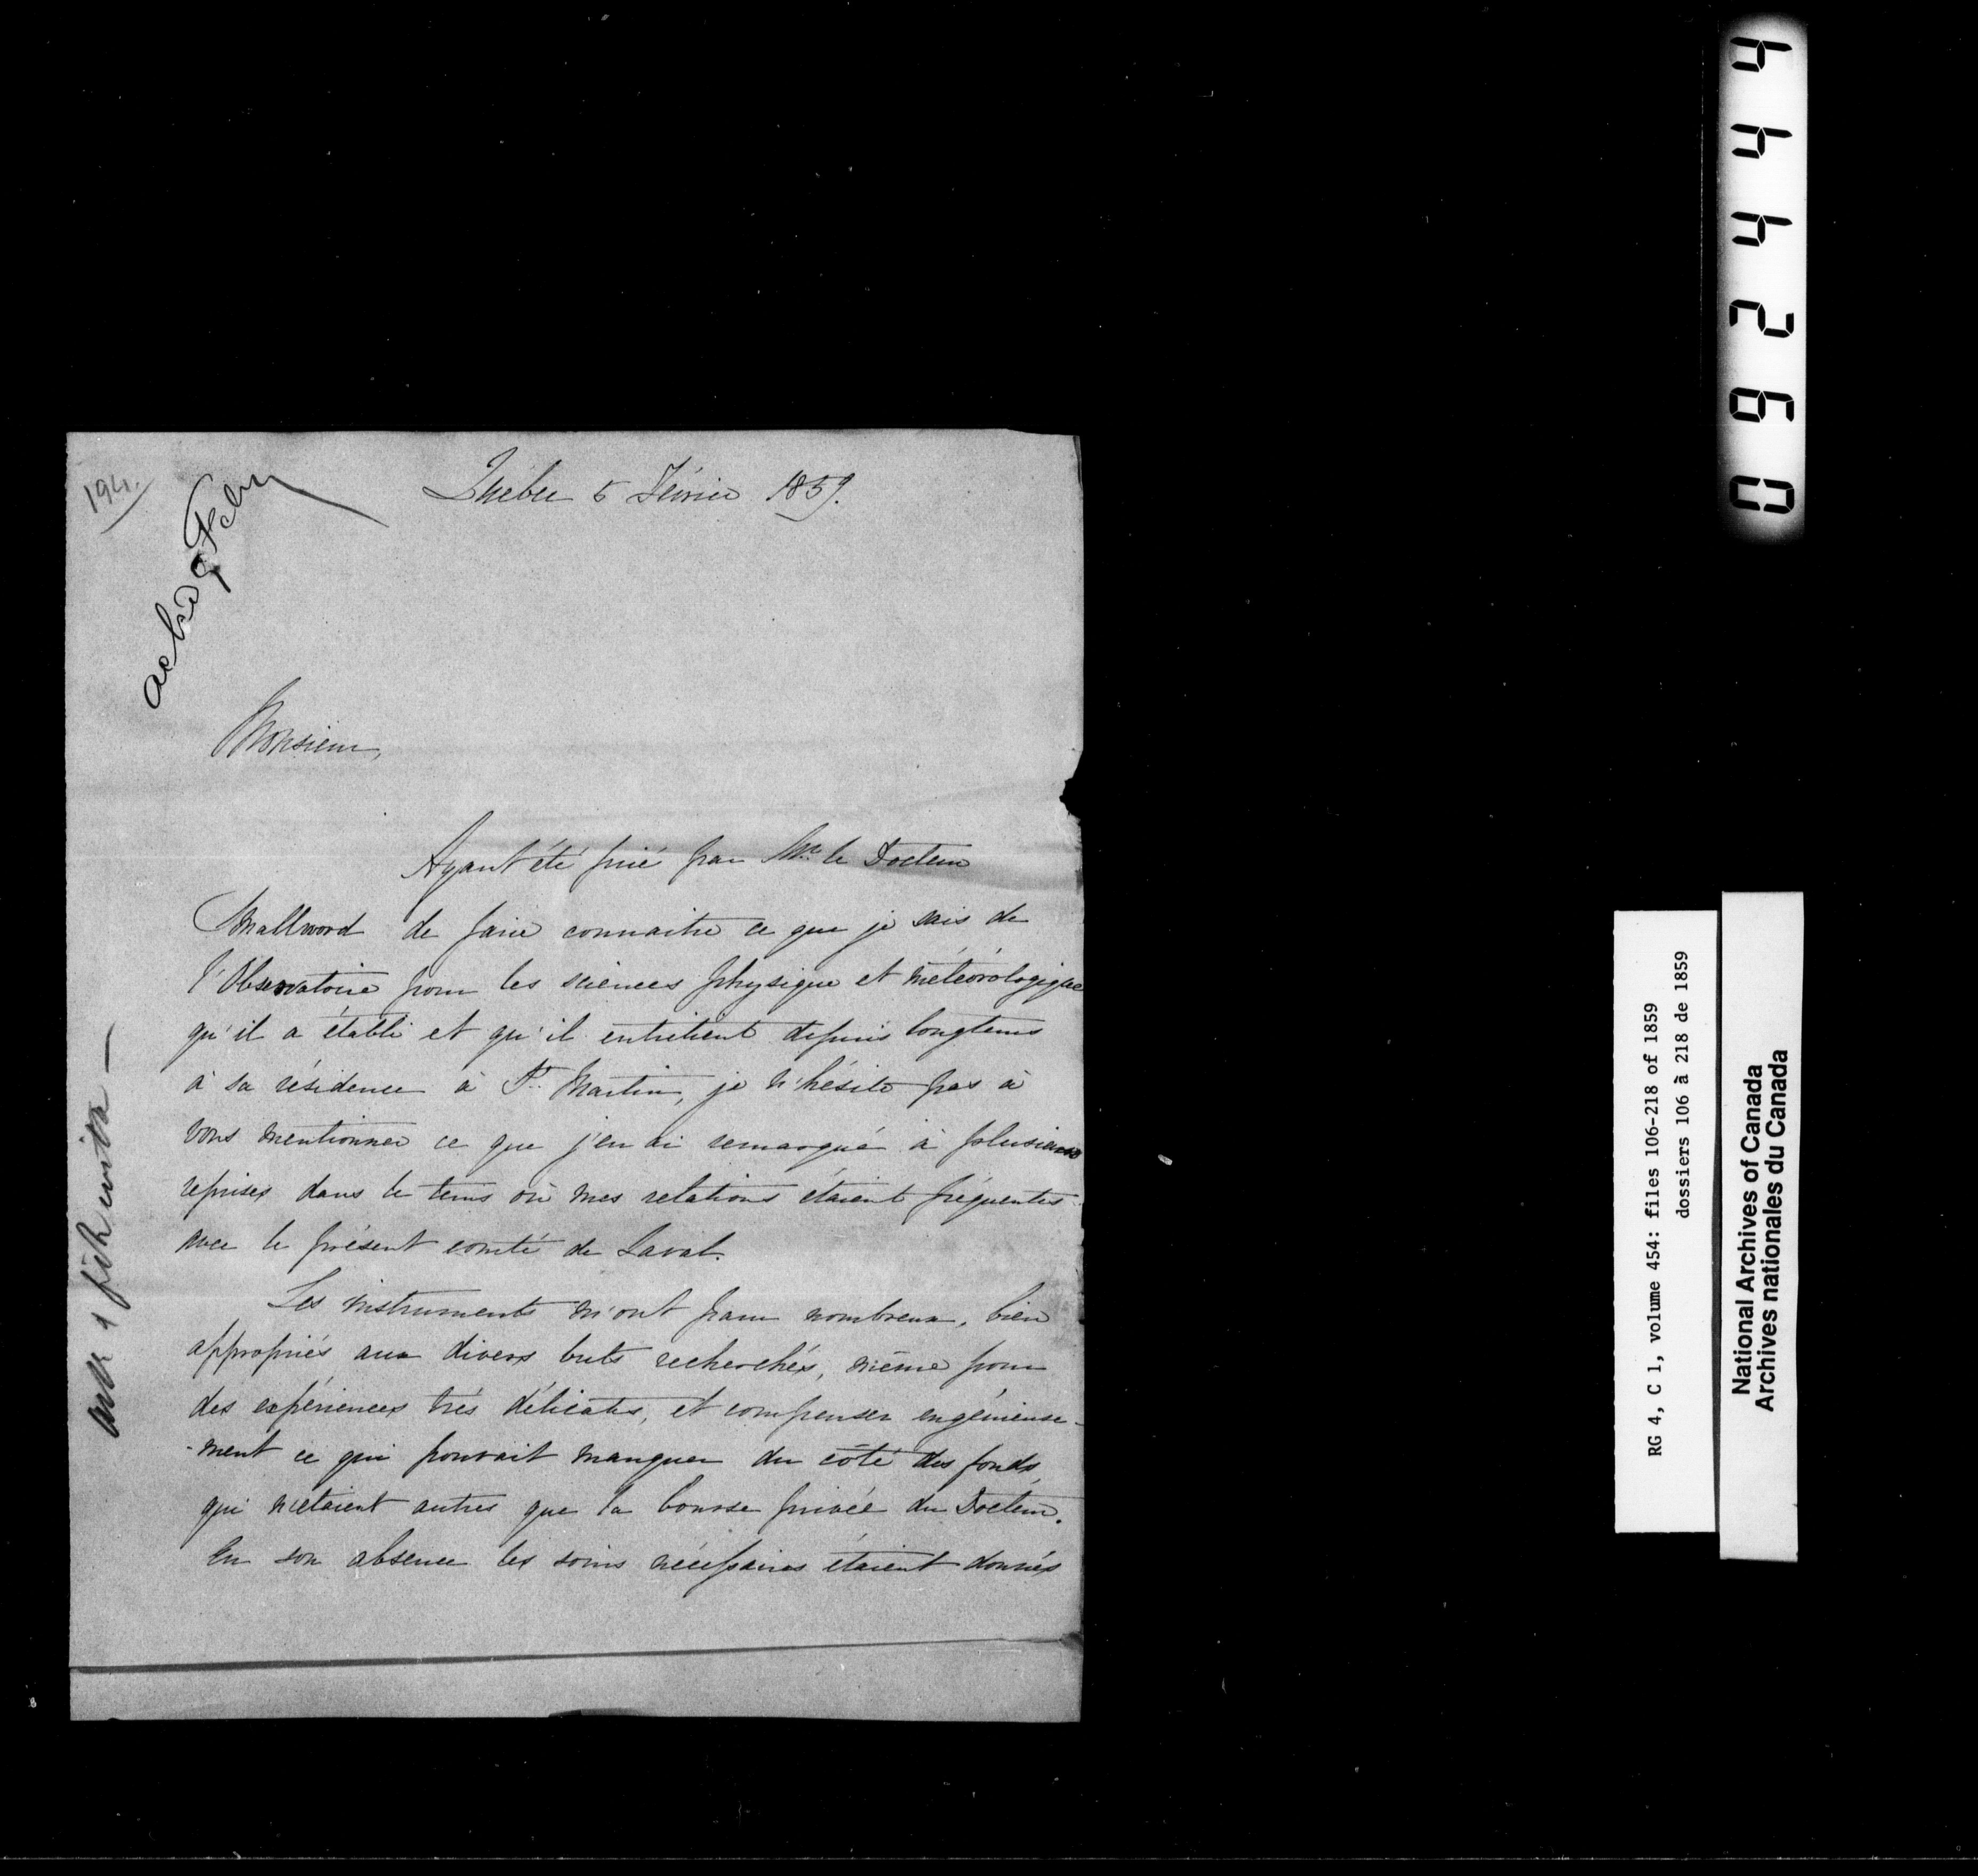 194.
Québec 5 Février 1859.
Monsieur,
Ayant été prié par Mr. le Docteur
Smallwood de faire connaitre ce que je sais de
l'Observatoire pour les sciences physique et météorologique
qu'il a établi et qu'il entretient depuis longtems
à sa résidence à St. Martin, je n'hésite pas à
vous mentionner ce que j'en ai remarqué à plusieurs
reprises dans le tems où mes relations étaient fréquentes
avec le présent comté de Laval.
Les instruments m'ont paru nombreux, bien
appropriés aux divers buts recherchés, même pour
des expériences très délicates, et compenser engénieuse-
-ment ce qui pouvait manquer du côté des fonds,
qui n'etaient autres que la bourse privée du Docteur.
En son absence les soins nécessaires étaient donnés
444290
RG 4, C 1, volume 454: files 106-218 of 1859
dossiers 106 à 218 de 1859
National Archives of Canada
Archives nationales du Canada